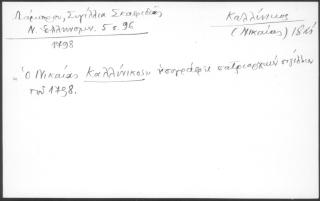 Λάμπρου, Σιγίλλια Σκαιρεδίας
Ν. Ἑλληνομν. 5 σ. 96
1798
Καλλίνικος
(Νικαίας) 18
«Ὁ Νικαίας Καλλίνικος» ὑπογράφει πατριαρχικὸν σιγίλλιον
τοῦ 1798.